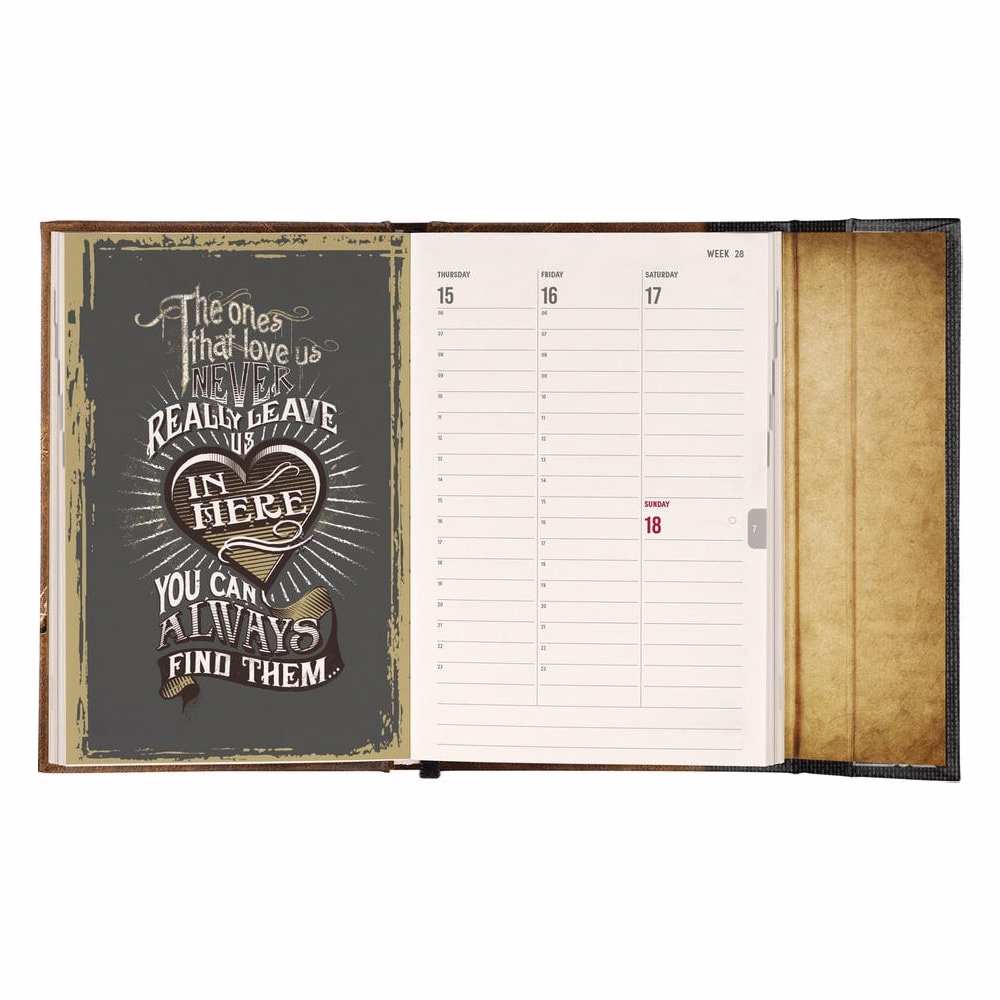 The ones
that love us
NEVER
REALLY LEAVE
US
IN
HERE
YOU CAN
ALWAYS
FIND THEM...
WEEK 28
THURSDAY
15
06
07
08
09
10
11
12
13
14
15
16
17
18
19
20
21
22
23
FRIDAY
16
06
07
08
09
10
11
12
13
14
15
16
17
18
19
20
21
22
23
SATURDAY
17
SUNDAY
18
7